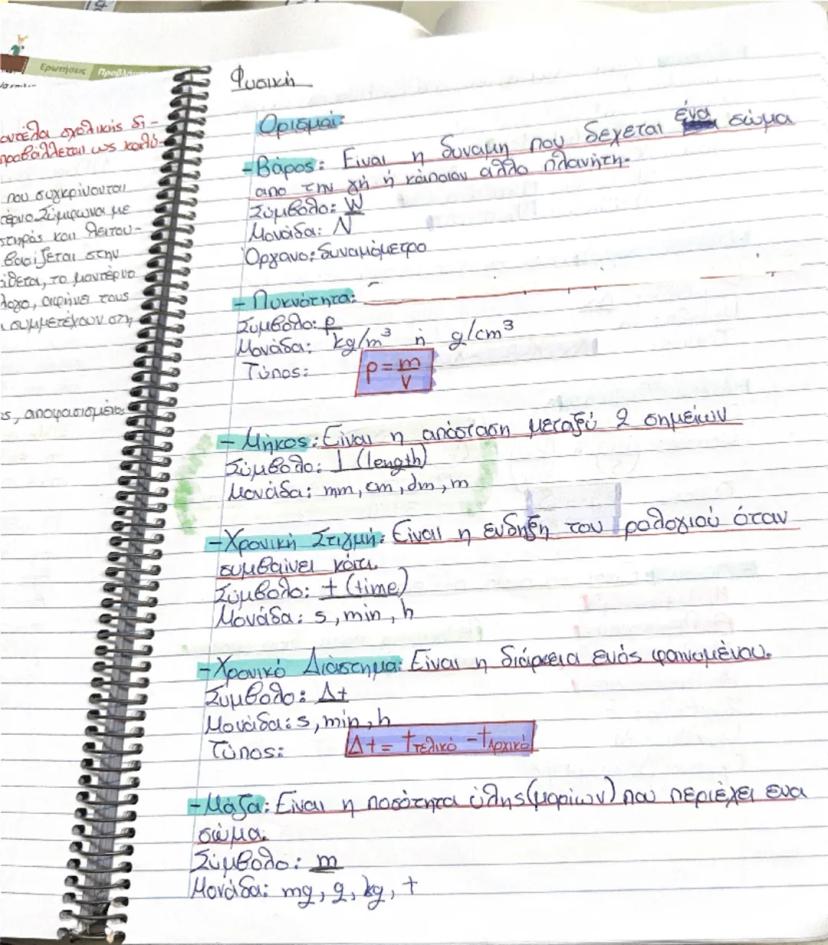 Ερωτήσεις
οντέλα σχολικής δι-
προβάλλεται ως καλύ-
που συγκρίνονται
τέρνο. Σύμφωνα με
στηράς και λειτου-
βασίζεται στην
ίθεται, το μοντέρνο
λογο, αφήνει τους
ι συμμετέχουν στη
ς, αποφασισμέν
Φυσική
Ορισμοί
-Βάρος: Είναι η δυναμη που δεχεται ένα σώμα
από την γή ή κάποιον αλλο πλανήτη.
Σύμβολο: W
Μονάδα: N
Όργανο: δυναμόμετρο
-Πυκνότητα:
Σύμβολο: ρ
Μονάδα: kg/m³ ή g/cm³
Τύπος: ρ = m/V
-Μήκος: Είναι η απόσταση μεταξύ 2 σημείων
Σύμβολο: l (length)
Μονάδα: mm, cm, dm, m
-Χρονική Στιγμή: Είναι η ένδηξη του ρολογιού όταν
συμβαίνει κάτι.
Σύμβολο: t (time)
Μονάδα: s, min, h
-Χρονικό Διάστημα: Είναι η διάρκεια ενός φαινομένου.
Σύμβολο: Δt
Μονάδα: s, min, h
Τύπος: Δt = tτελικό - tαρχικό
-Μάζα: Είναι η ποσότητα ύλης (μορίων) που περιέχει ενα
σώμα.
Σύμβολο: m
Μονάδα: mg, g, kg, t